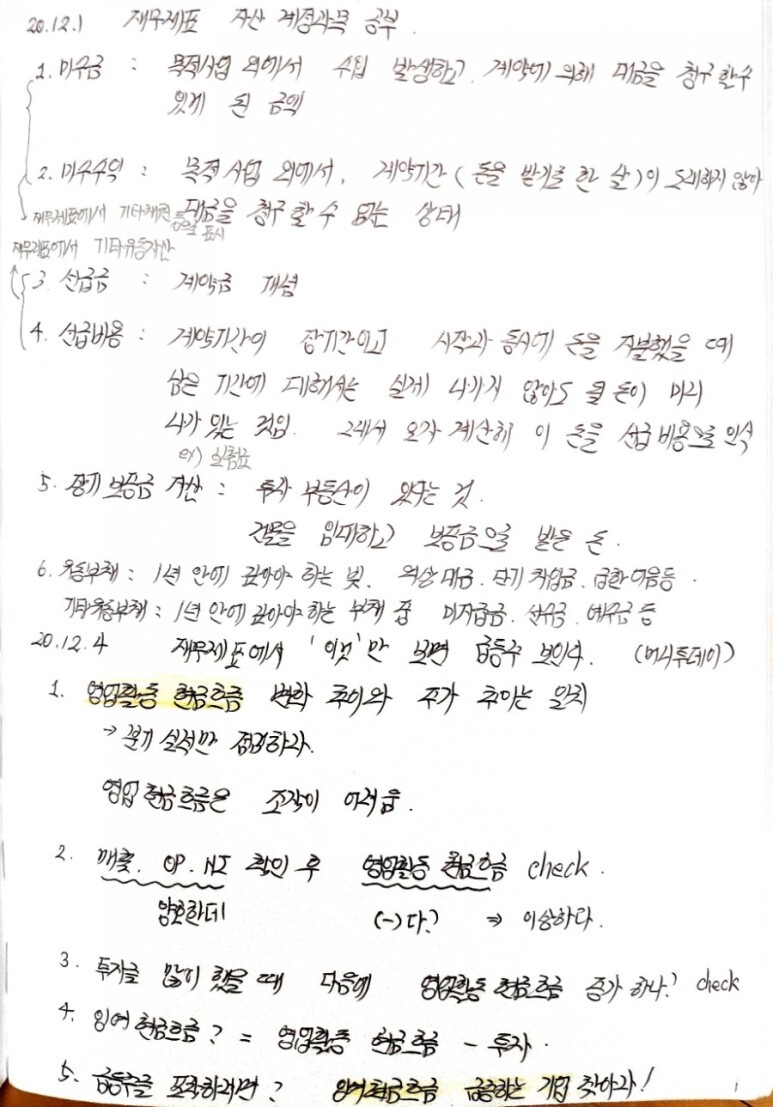 20.12.1 재무제표 자산 계정과목 공부.
1. 미수금 : 목적사업 외에서 수입 발생하고, 계약에 의해 대금을 청구할 수
있게 된 금액
2. 미수수익 : 목적사업 외에서, 계약기간 (돈을 받기로 한 날)이 도래하지 않아
대금을 청구할 수 없는 상태
재무제표에서 기타채권 등으로 표시
재무제표에서 기타유동자산
3. 선급금 : 계약금 개념
4. 선급비용 : 계약기간이 장기간이고 시작과 동시에 돈을 지불했을 때
남은 기간에 대해서는 실제 나가지 않아도 될 돈이 미리
나가 있는 것임. 그래서 오가 계산해 이 돈을 선급비용으로 인식
ex) 보험료
5. 장기 보증금 자산 : 투자 부동산이 있다는 것.
건물을 임대하고 보증금으로 받은 돈.
6. 유동부채 : 1년 안에 갚아야 하는 빚. 외상 대금. 단기 차입금. 급한 어음 등.
기타유동부채 : 1년 안에 갚아야 하는 부채 중 미지급금. 선수금. 예수금 등
20.12.4 재무제표에서 '이것'만 보면 급등주 보인다. (머니투데이)
1. 영업활동 현금흐름 변화 추이와 주가 추이는 일치
→ 분기 실적만 점검하라.
영업 현금흐름은 조작이 어려움.
2. 매출. OP. NI 확인 후 영업활동 현금흐름 check.
양호한데 (-)다? ⇒ 이상하다.
3. 투자를 많이 했을 때 다음에 영업활동 현금흐름 증가 하나? check
4. 잉여 현금흐름? = 영업활동 현금흐름 - 투자.
5. 급등주를 포착하려면? 잉여현금흐름 급증하는 기업 찾아라!